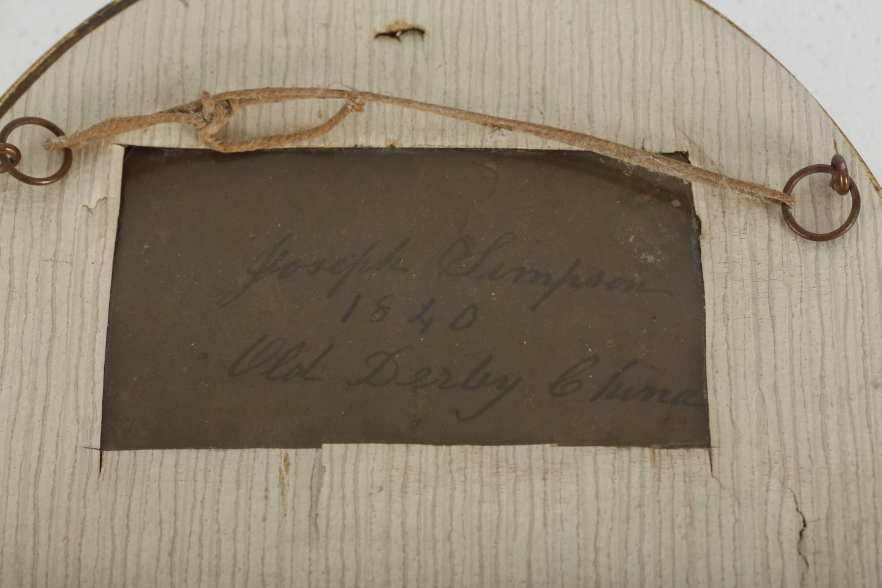 Joseph Simpson
1840
Old Derby China